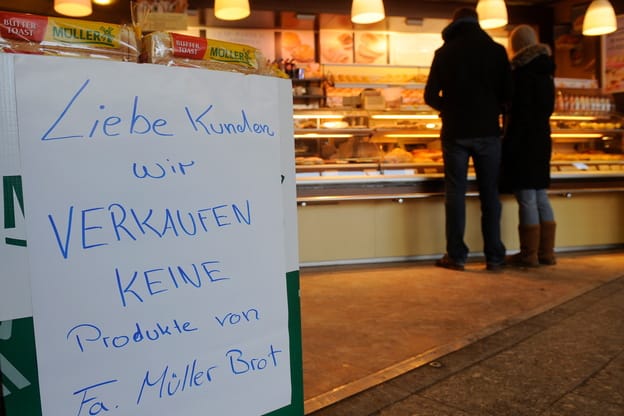 BUTTER
TOAST
MÜLLER
BUTTER
TOAST
MÜLLER
Liebe Kunden
wir
VERKAUFEN
KEINE
Produkte von
Fa. Müller Brot